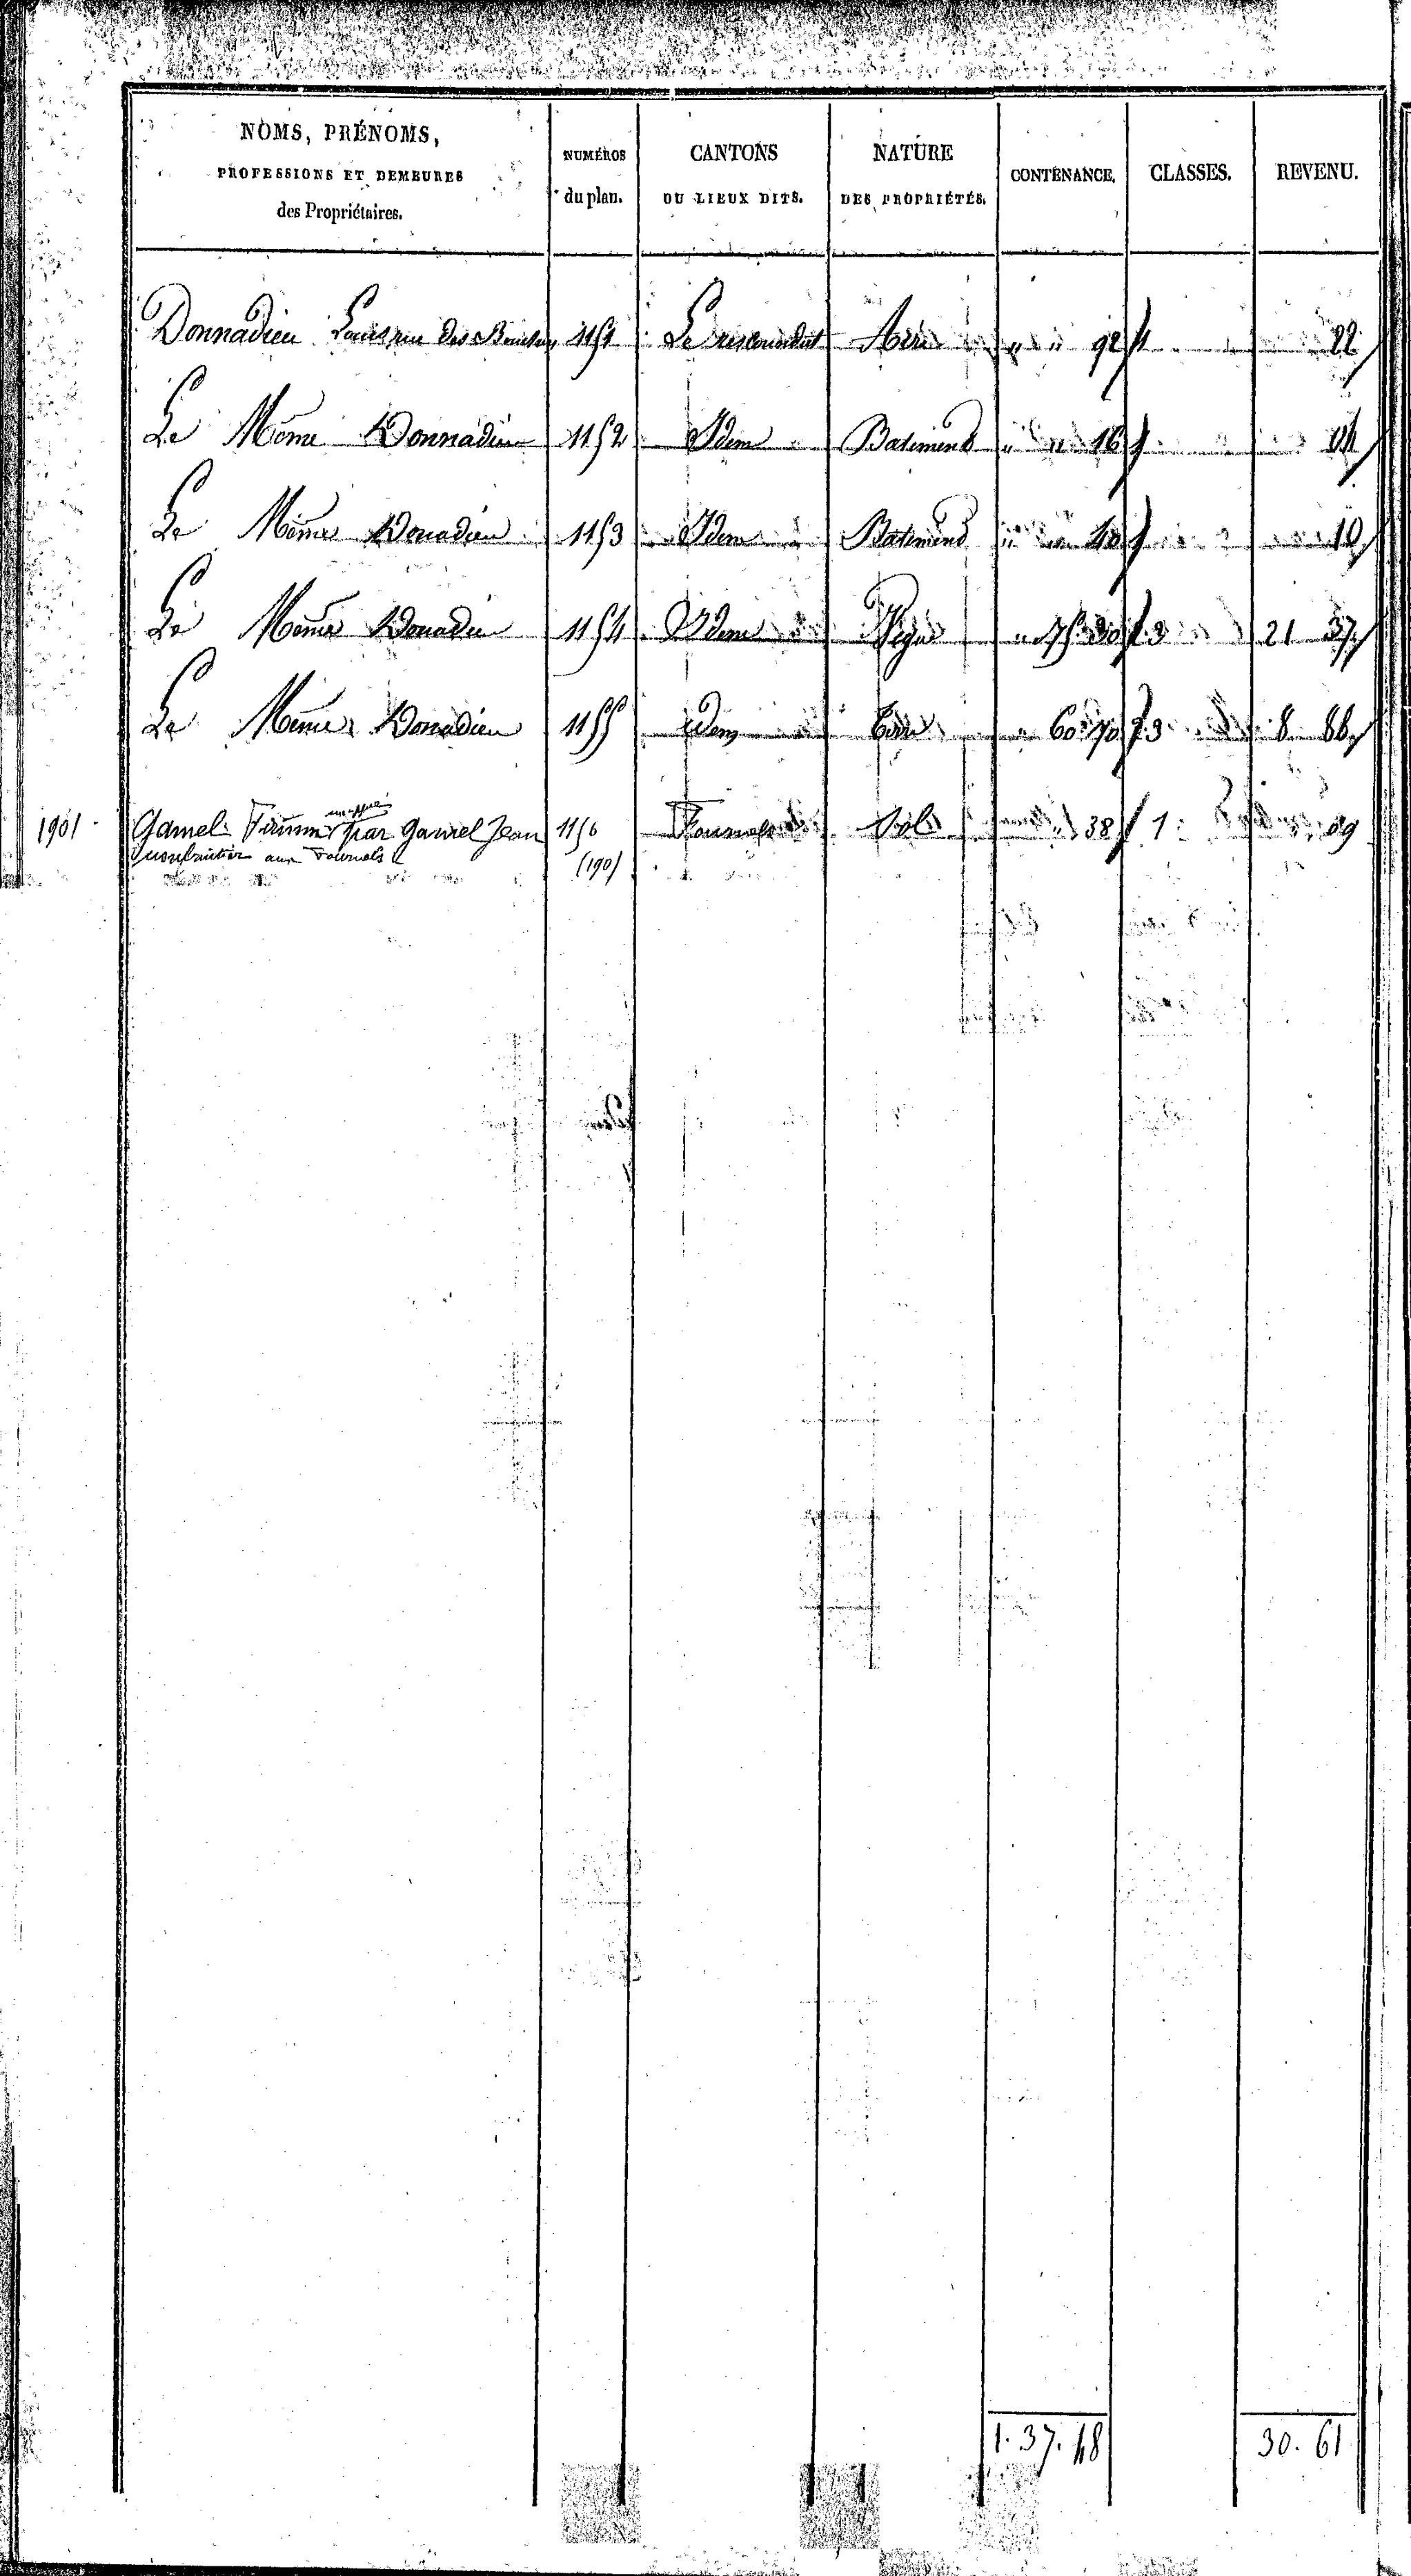 NOMS, PRÉNOMS,
PROFESSIONS ET DEMEURES
des Propriétaires.
NUMÉROS
du plan.
CANTONS
OU LIEUX DITS.
NATURE
DES PROPRIÉTÉS.
CONTENANCE.
CLASSES.
REVENU.
Donnadieu Louis rue des 1151 Le Aire " " 92 1 22
Le Même Donnadieu 1152 Idem Batiment " " 16 04
Le Même Donadieu 1153 Idem Batiment " " 10
Le Même Donadieu 1154 Idem Vigne " 75 30 3 21 37
Le Même Donadieu 1155 idem Terre " 60 70 3 8 86
1901 Gamel Firmin par Gamel Jean 1156 Fournels Sol 38 1 09
usufruitier aux Fournels (190)
1. 37. 48 30. 61